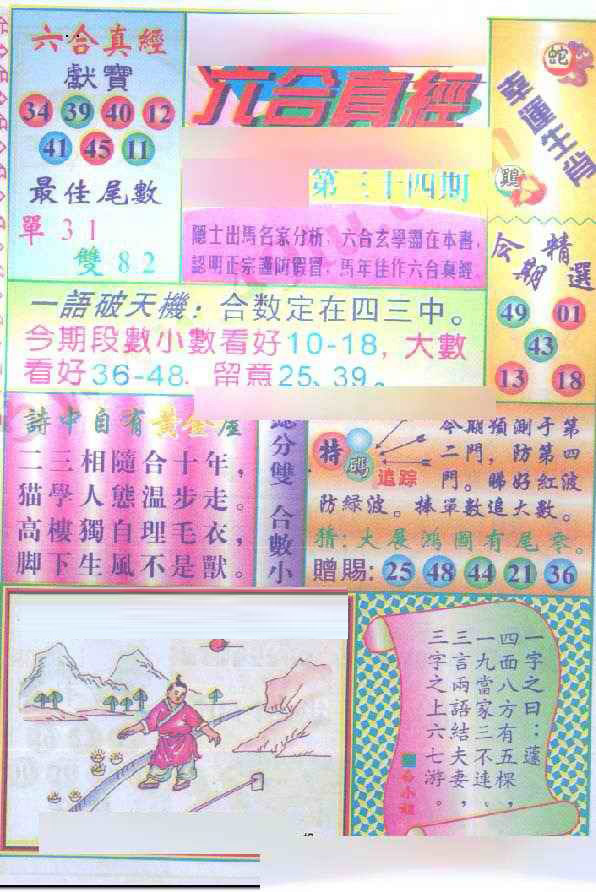 六合真經
獻寶
34 39 40 12
41 45 11
最佳尾數
單 31
雙 82
六合真經
第三十四期
隱士出馬名家分析，六合玄學盡在本書，
認明正宗謹防假冒，馬年佳作六合真經
蛇
幸運生肖
鷄
今期精選
49 01
43
13 18
一語破天機：合数定在四三中。
今期段數小數看好10-18，大數
看好36-48，留意25、39。
詩中自有黃金屋
二三相隨合十年，
猫學人態温步走。
高樓獨自理毛衣，
脚下生風不是獸。
總分雙 合數小
特碼
追踪
今期預測于第
二門，防第四
門。睇好紅波
防緑波。捧單數追大數。
猜：大展鴻圖有尾零。
贈賜：25 48 44 21 36
一字之曰：蓬
四面八方有五棵，
一九當家三不達。
三言兩語結夫妻，
三字之上六七游。